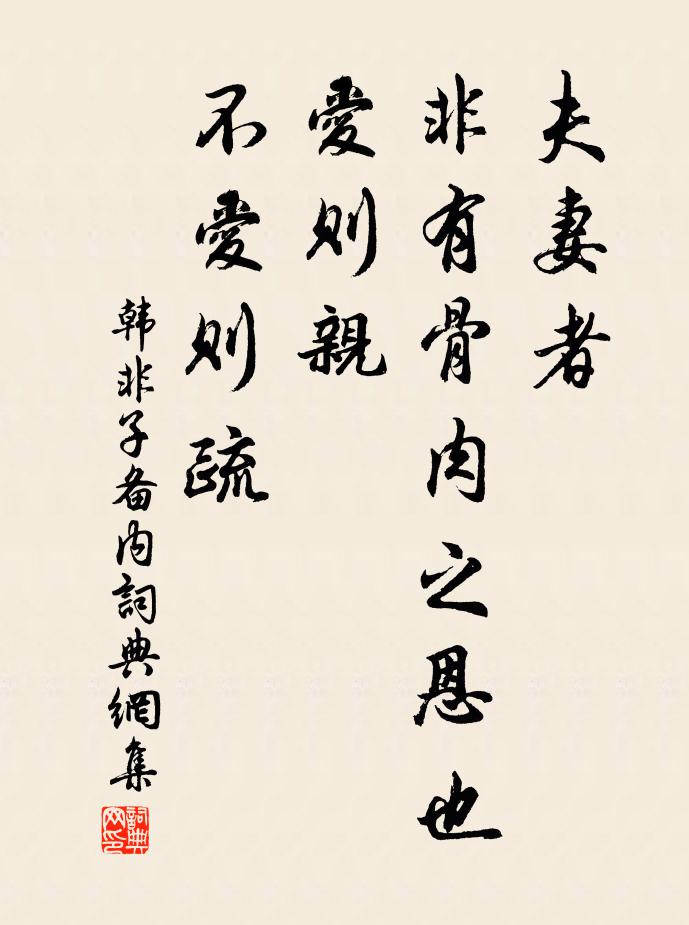 夫妻者
非有骨肉之恩也
愛則親
不愛則疏
韩非子备内詞典網集
詞典网印